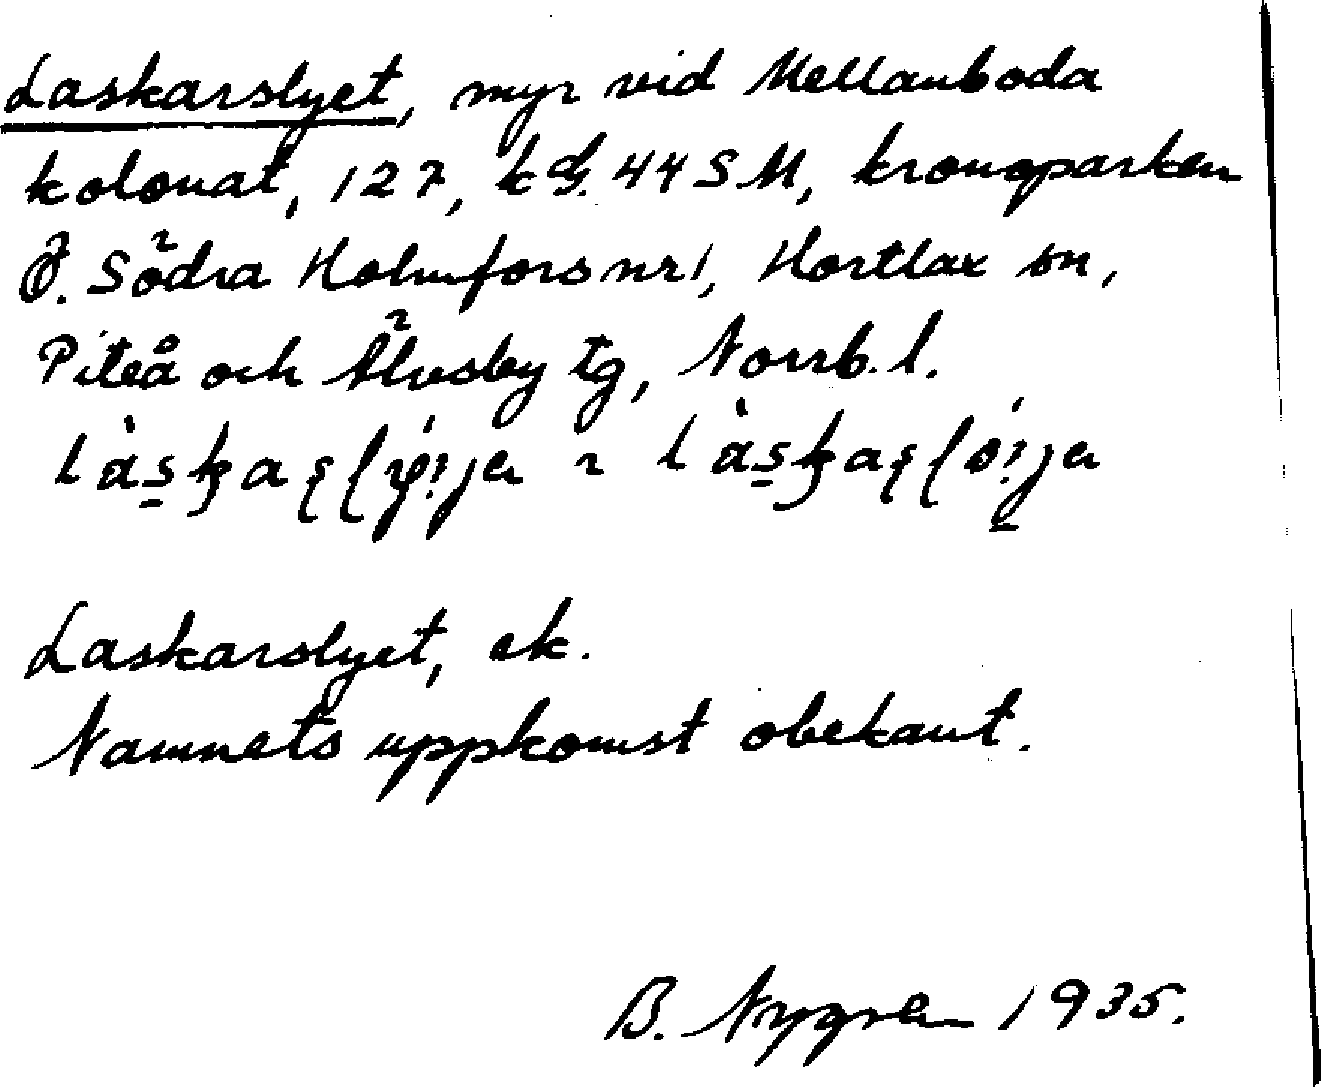 Laskarslyet, myr vid Mellanboda
kolonat, 127, kG. 44 SM, kronoparken
Ö. Södra Holmfors nr 1, Hortlax sn,
Piteå och Älvsby tg, Norrb. l.
Laskarslyet, ek.
Namnets uppkomst obekant.
B. Nygren 1935.